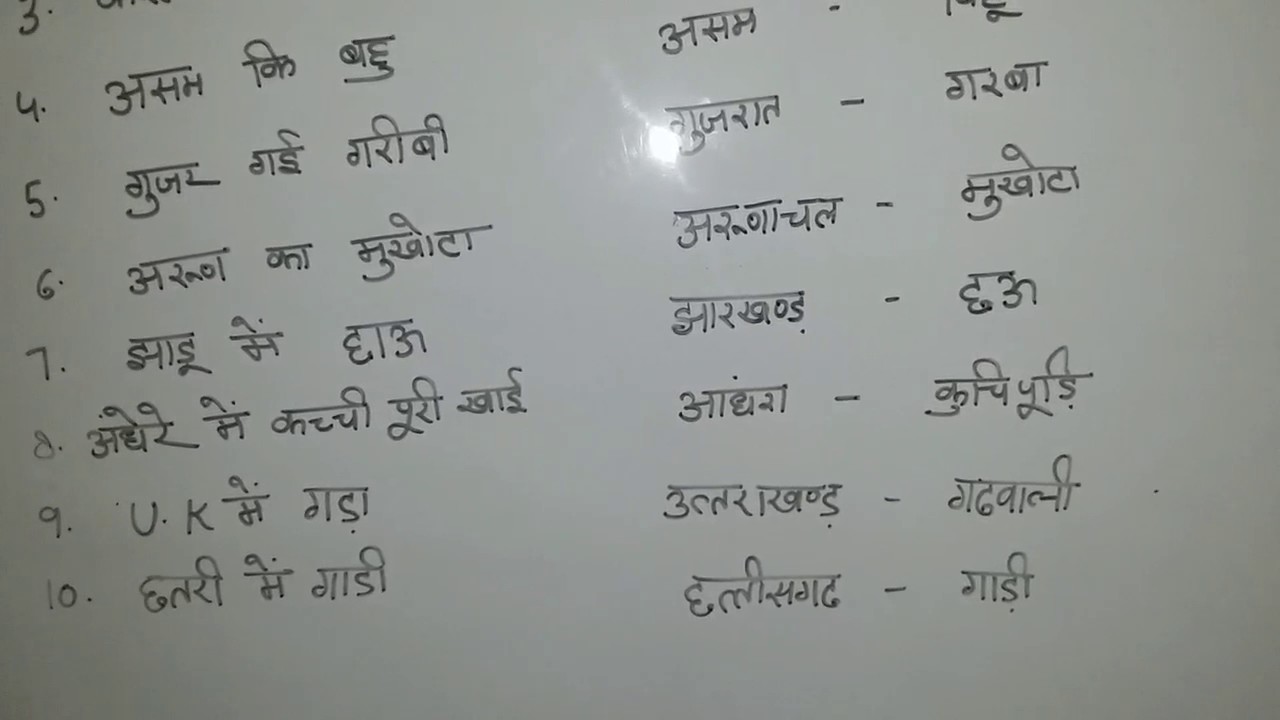 3.
4. असम कि बहु असम - बिहू
5. गुजर गई गरीबी गुजरात - गरबा
6. अरूण का मुखोटा अरूणाचल - मुखोटा
7. झाडू में छाऊ झारखण्ड़ - छऊ
8. अंधेरे में कच्ची पूरी खाई आंधरा - कुचिपूड़ि
9. U.K में गड़ा उत्तराखण्ड़ - गढवाली
10. छतरी में गाडी छत्तीसगढ - गाड़ी